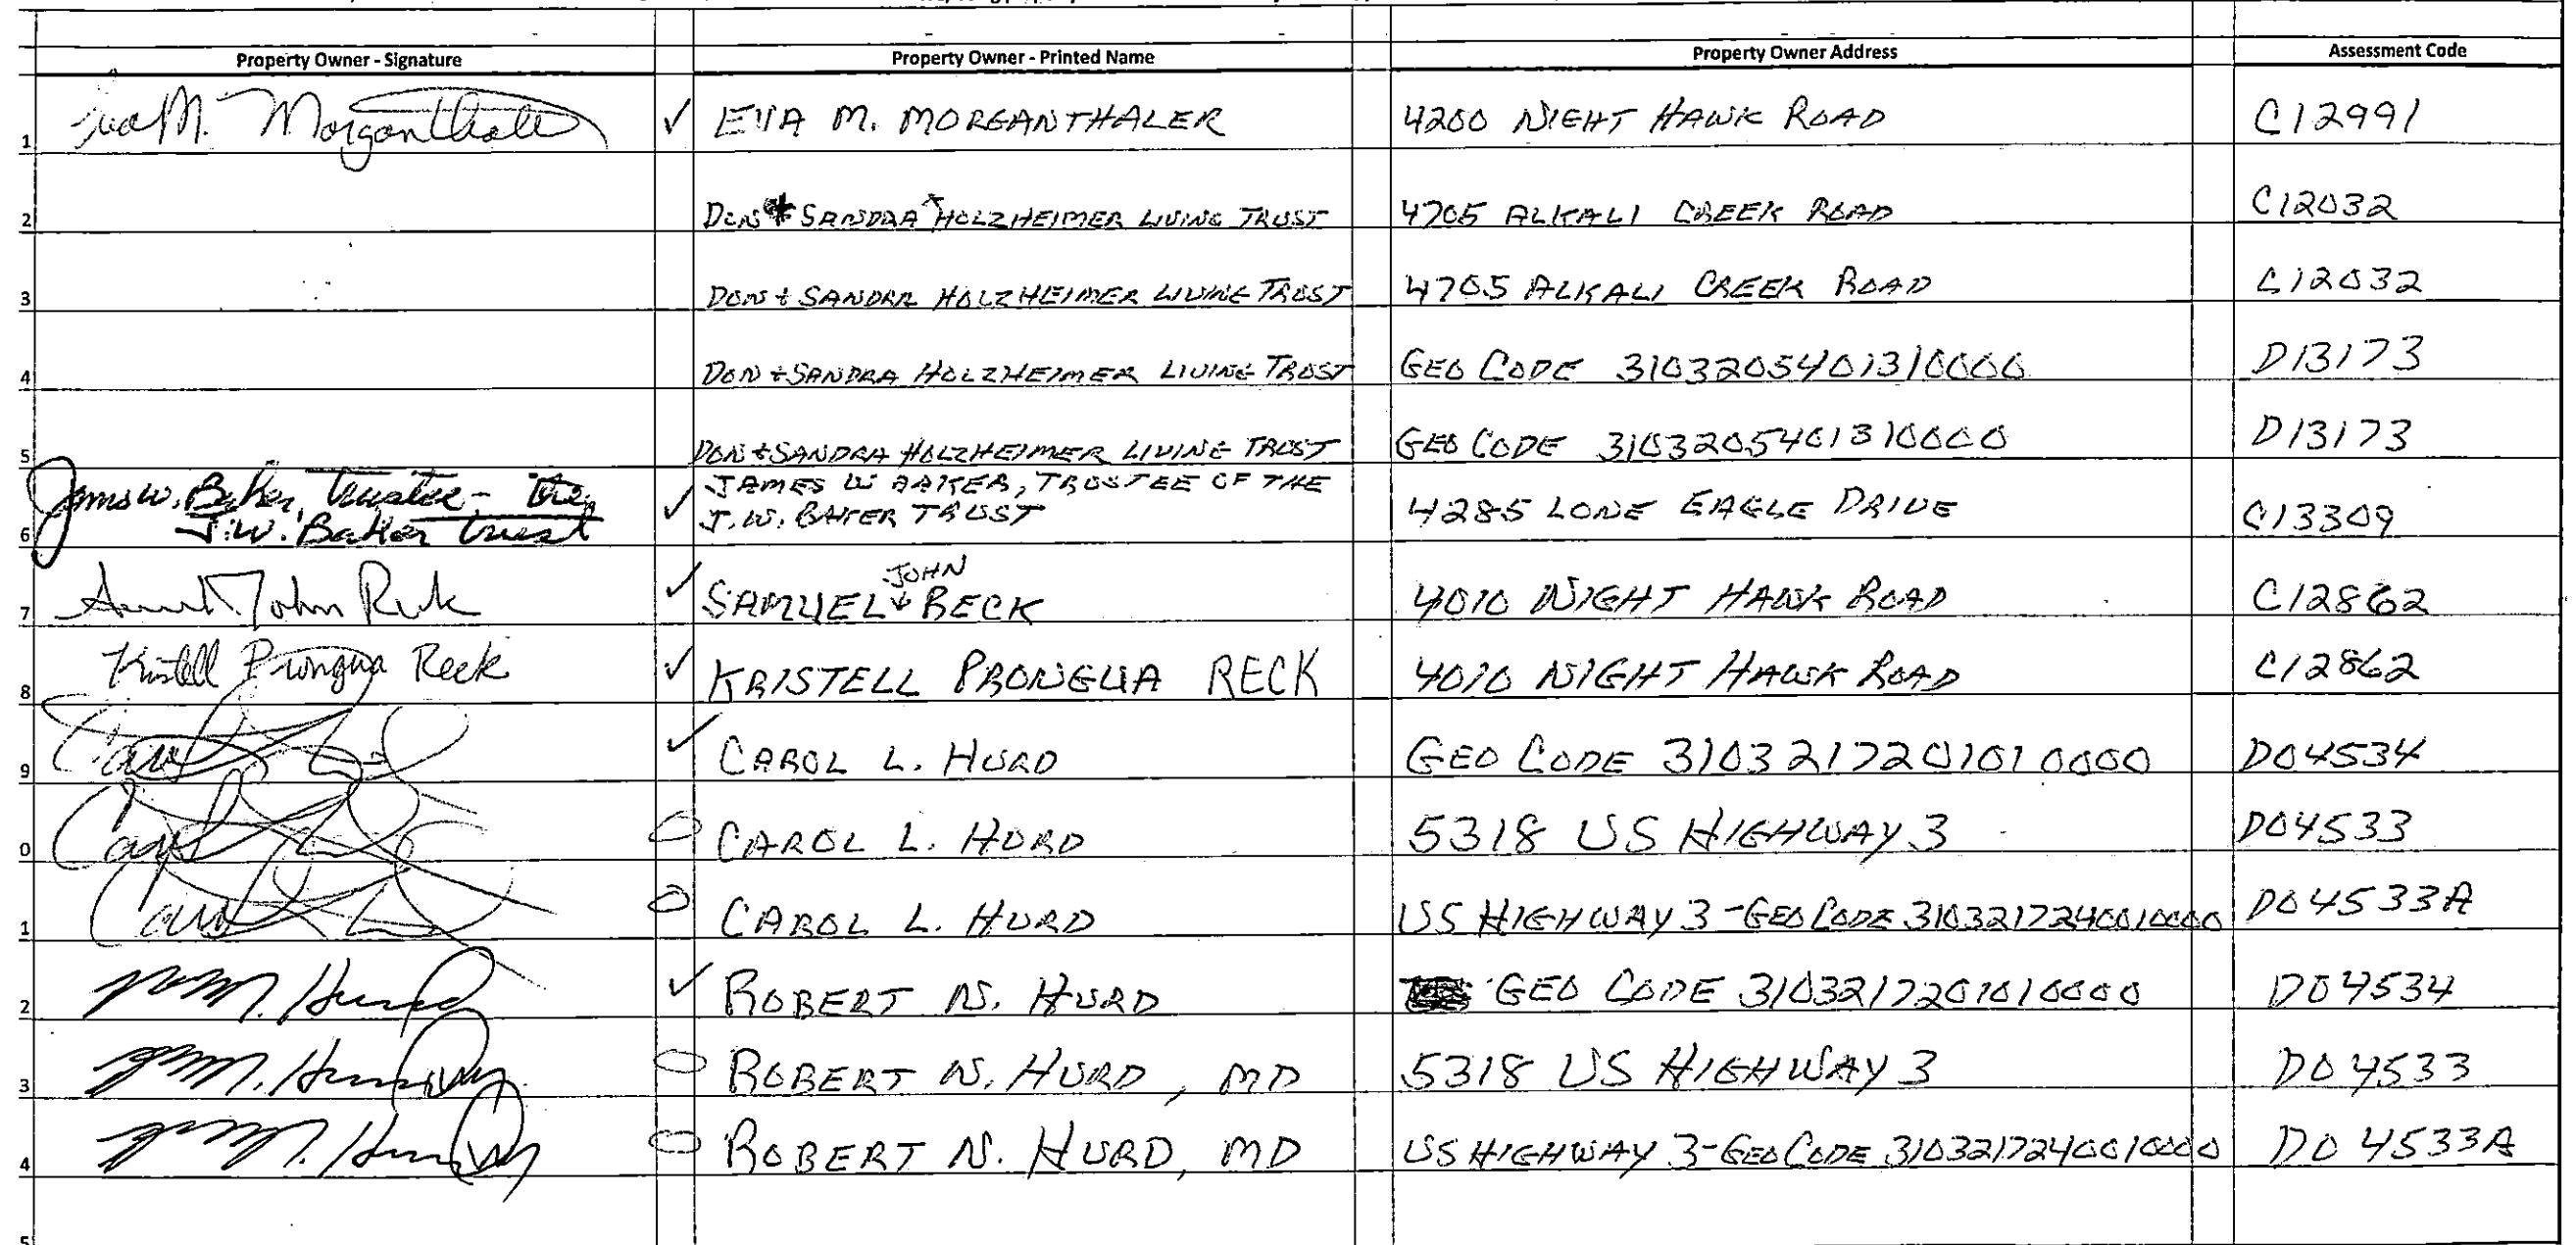 Property Owner - Signature Property Owner - Printed Name Property Owner Address Assessment Code
1 Eva M. Morganthaler ✓ EVA M. MORGANTHALER 4200 NIGHT HAWK ROAD C12991
2 DON & SANDRA HOLZHEIMER LIVING TRUST 4705 ALKALI CREEK ROAD C12032
3 DON + SANDRA HOLZHEIMER LIVING TRUST 4705 ALKALI CREEK ROAD C12032
4 DON + SANDRA HOLZHEIMER LIVING TRUST GEO CODE 3103205401310000 D13173
5 DON & SANDRA HOLZHEIMER LIVING TRUST GEO CODE 3103205401310000 D13173
James W. Baker, trustee - the JAMES W BAKER, TRUSTEE OF THE
6 J.W. Baker trust ✓ J.W. BAKER TRUST 4285 LONE EAGLE DRIVE C13309
JOHN
7 John Reck ✓ SAMUEL RECK 4010 NIGHT HAWK ROAD C12862
8 Kristell Prongua Reck ✓ KRISTELL PRONGUA RECK 4010 NIGHT HAWK ROAD C12862
9 Carol ✓ CAROL L. HURD GEO CODE 3103217201010000 D04534
0 Carol CAROL L. HURD 5318 US HIGHWAY 3 D04533
1 Carol CAROL L. HURD US HIGHWAY 3 - GEO CODE 3103217240010000 D04533A
2 Hurd ✓ ROBERT N. HURD GEO CODE 3103217201010000 D04534
3 Hurd ROBERT N. HURD, MD 5318 US HIGHWAY 3 D04533
4 Hurd ROBERT N. HURD, MD US HIGHWAY 3 - GEO CODE 3103217240010000 D04533A
5